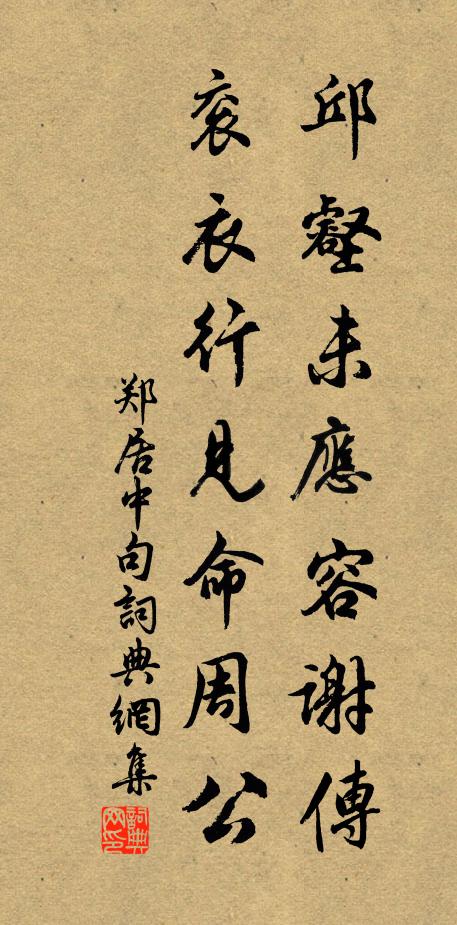 邱壑未應容謝傅
衮衣行見命周公
郑居中句詞典網集
詞典网印